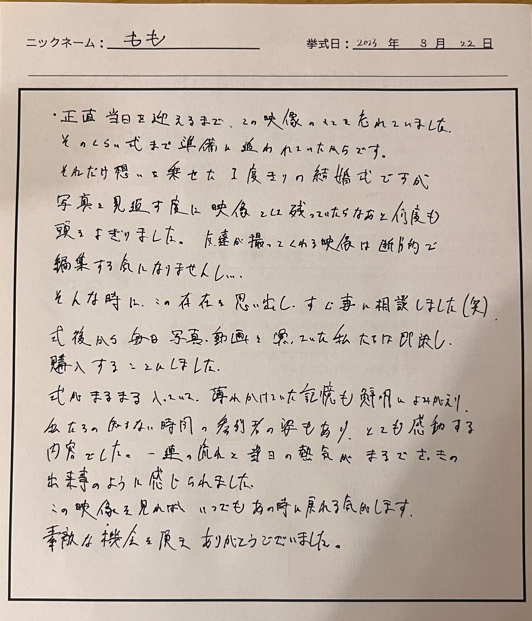 ニックネーム: もも 挙式日: 2023 年 3 月 22 日
・正直 当日を迎えるまで、この映像のことを忘れていました。
そのくらい式まで準備に追われていたからです。
それだけ想いを乗せた1度きりの結婚式ですが
写真を見返す度に映像として残っていたらなあと何度も
頭をよぎりました。友達が撮ってくれる映像は断片的で
編集する気になりませんし…
そんな時に、この存在を思い出し、すぐ妻に相談しました(笑)
式後から毎日写真、動画を漁っていた私たちは即決し、
購入することにしました。
式がまるまる入っていて、薄れかけていた記憶も鮮明によみがえり、
私たちの知らない時間の参列者の姿もあり、とても感動する
内容でした。一連の流れと当日の熱気がまるでさっきの
出来事のように感じられました。
この映像を見れば いつでもあの時に戻れる気がします。
素敵な機会を頂き ありがとうございました。